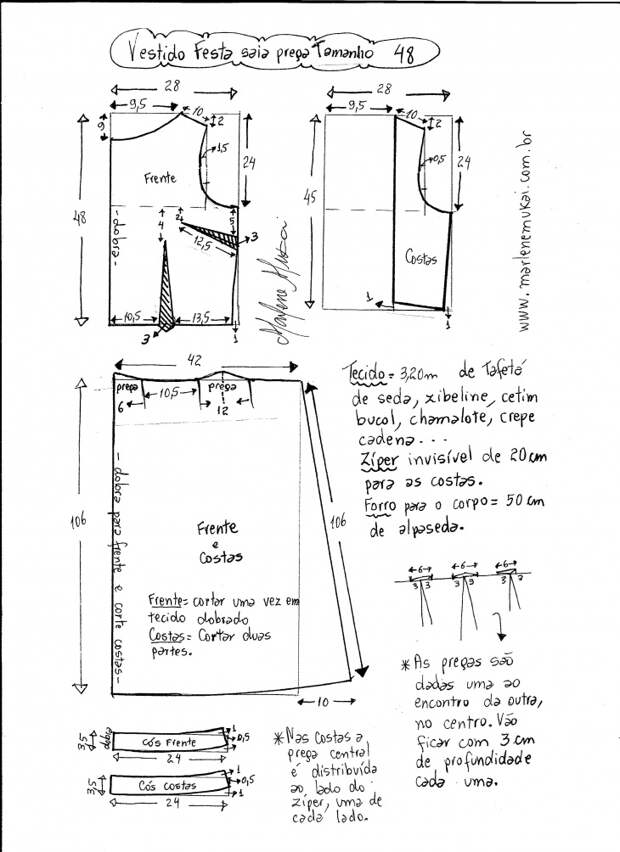 Vestido Festa saia prega Tamanho 48
28
9,5
10
2
9
1,5
24
Frente
48
- dobra -
4
2
5
3
12,5
10,5
13,5
3
1
Marlene Mukai
28
9,5
10
2
0,5
24
45
Costas
1
1
www.marlenemukai.com.br
42
prega
10,5
prega
6
12
106
- dobra para frente e corte costas -
106
Frente
e
Costas
Frente= cortar uma vez em
tecido dobrado
Costas= Cortar duas
partes.
10
Tecido = 3,20m de Tafetá
de seda, xibeline, cetim
bucol, chamalote, crepe
cadena...
Zíper invisível de 20cm
para as costas.
Forro para o corpo = 50 cm
de alpaseda.
6
6
6
3 3
3 3
3 3
*As pregas são
dadas uma ao
encontro da outra,
no centro. Vão
ficar com 3 cm
de profundidade
cada uma.
3,5
dobra
Cós Frente
1
0,5
1
24
3,5
Cós costas
1
0,5
1
24
*Nas Costas a
prega central
é distribuída
ao lado do
zíper, uma de
cada lado.